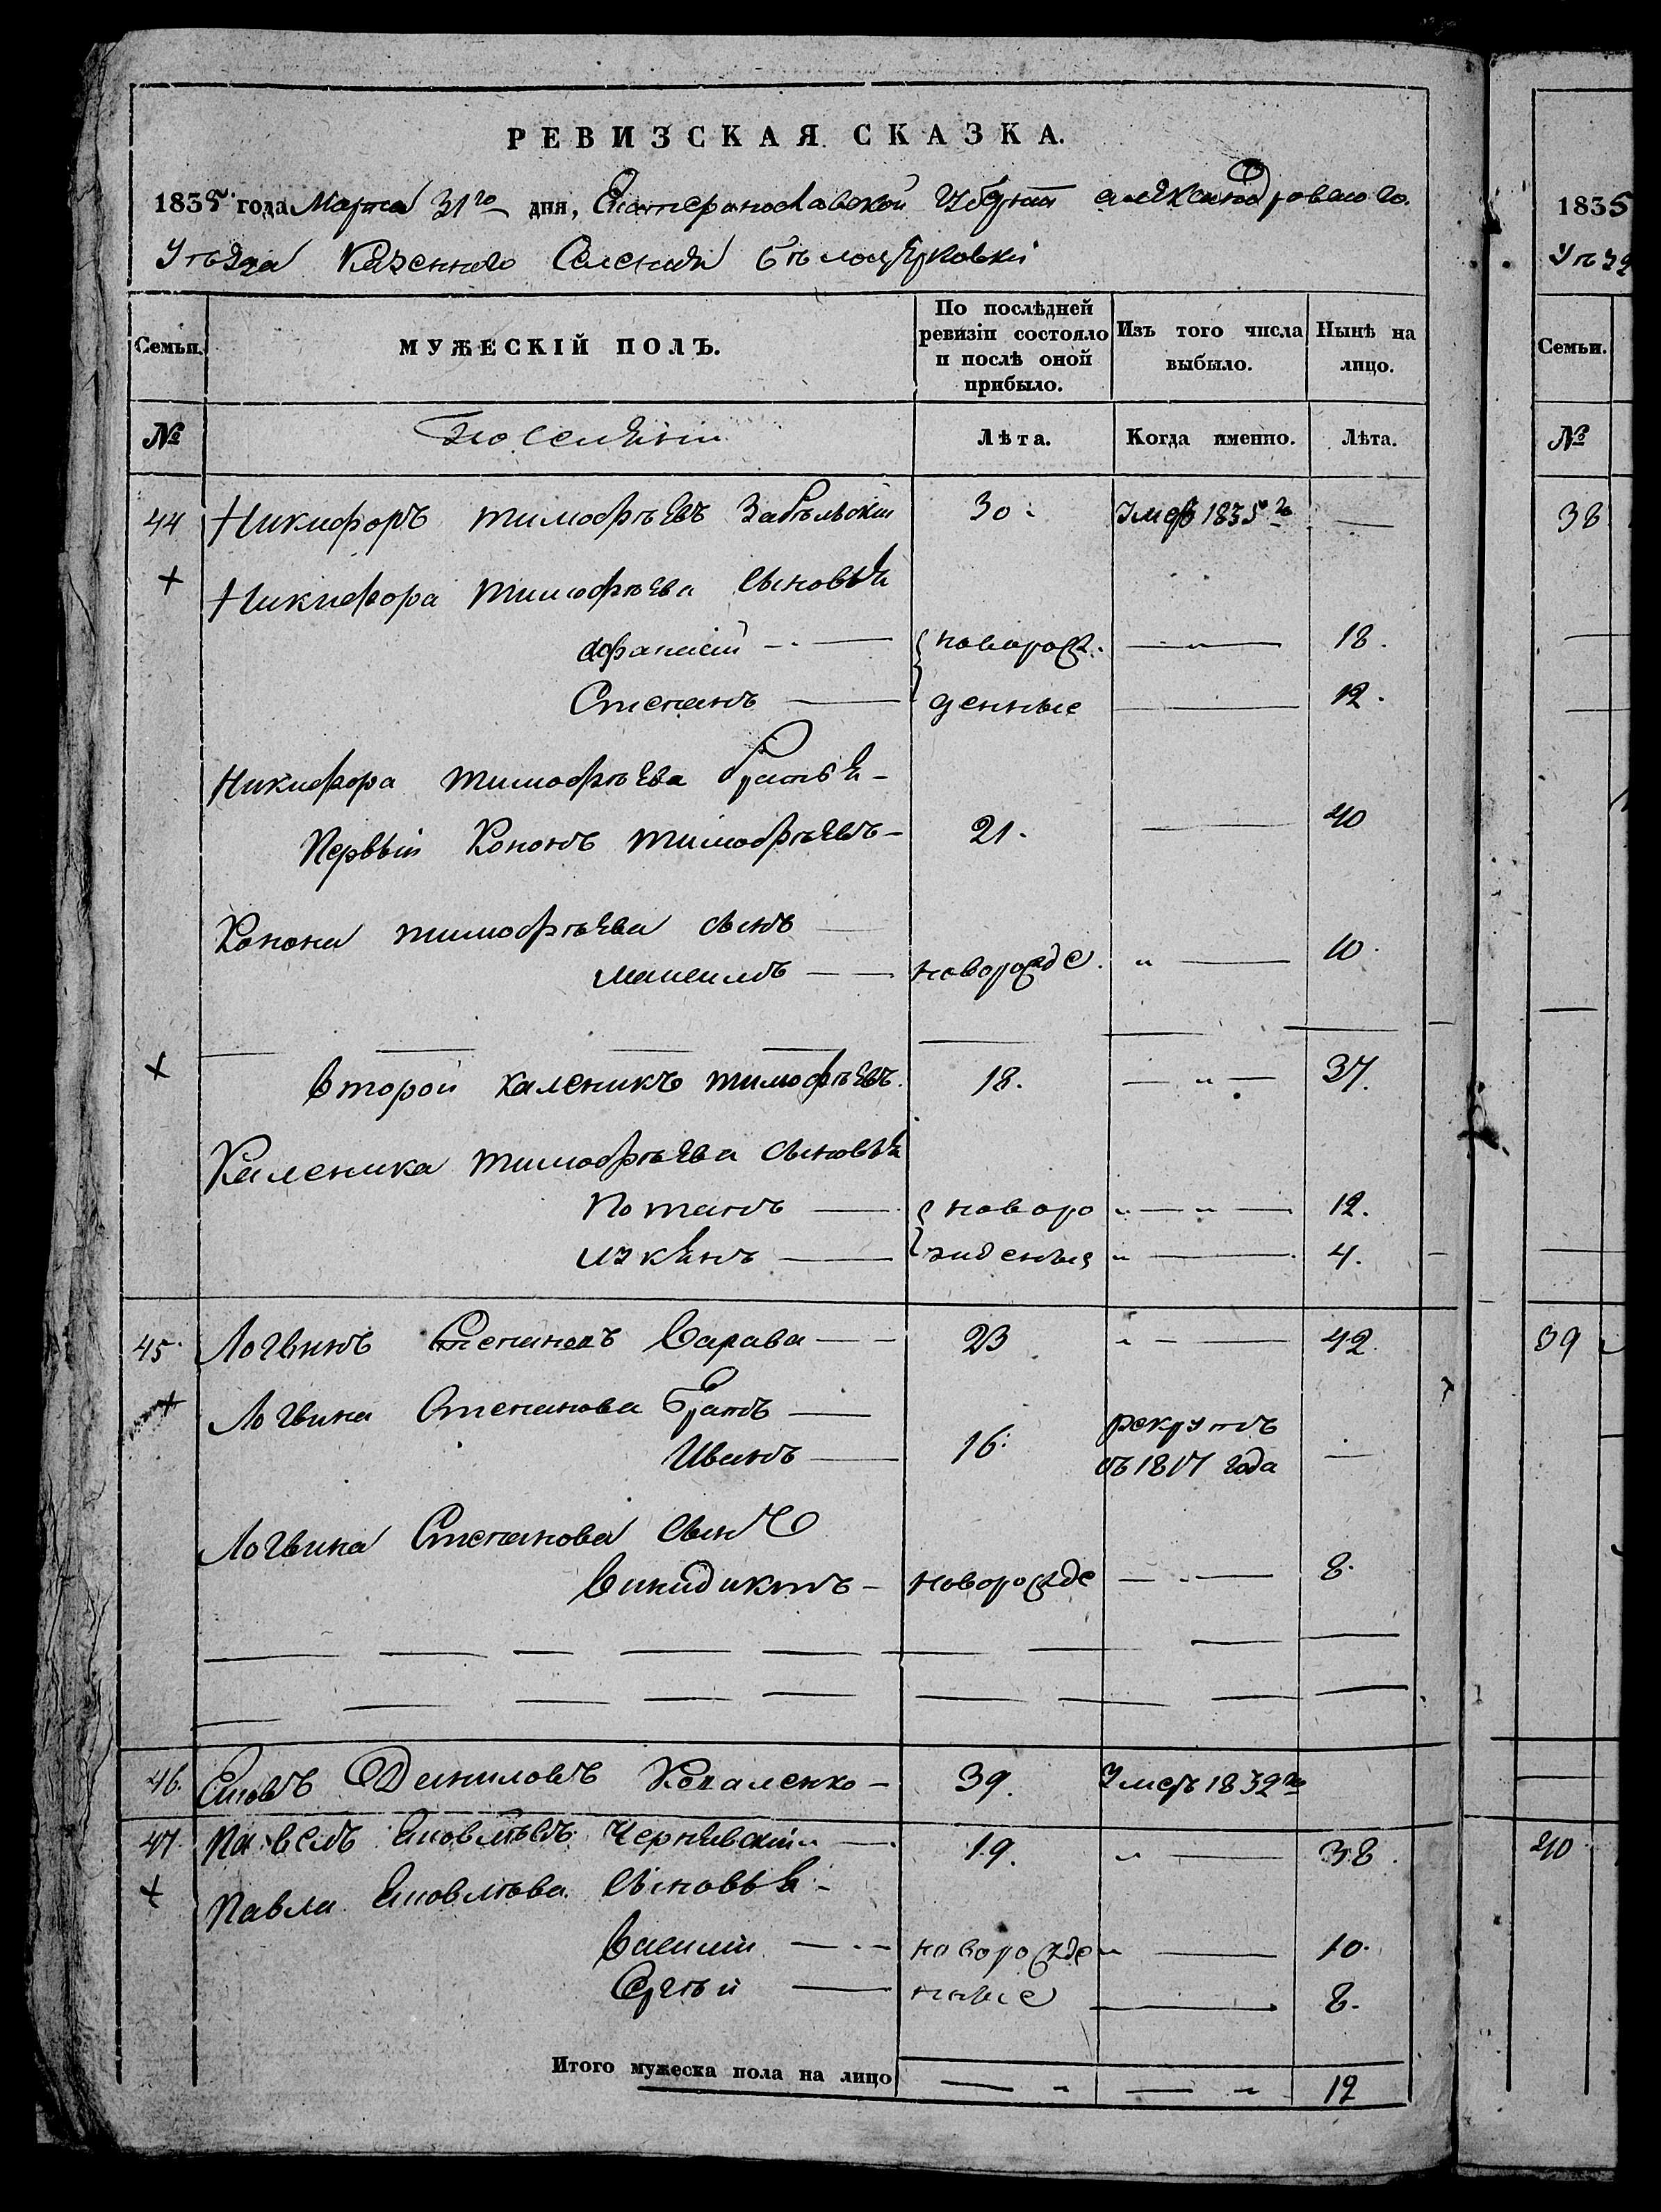 РЕВИЗСКАЯ СКАЗКА.
1835 года Марта 31го дня, Екатеринославской Губернии александровскаго.
Уѣзда Казеннаго Селенія Бѣлоцерковки
Семьи. МУЖЕСКІЙ ПОЛЪ. По послѣдней ревизіи состояло и послѣ оной прибыло. Изъ того числа выбыло. Нынѣ на лицо.
№ Поселяни Лѣта. Когда именно. Лѣта.
44 Никифоръ тимофѣевъ Забѣльскій 30. Умеръ 1835го —
Никифора тимофѣева сыновья
афанасій новорож 18.
Степанъ денные 12.
Никифора тимофѣева братья
Первый Кононъ тимофѣевъ 21. 40
Конона тимофѣева сынъ
Мапеимъ новорожде 10.
второй каленикъ тимофѣевъ 18. 37.
Каленика тимофѣева сыновья
Потапъ новоро 12.
жденыя 4.
45. Логвинъ Степановъ Сарава 23 42.
Логвина Степанова братъ
Иванъ 16. рекрутъ
въ 1817 года —
Логвина Степанова сынъ
Винидиктъ новорожде 8.
46. Даниловъ Коваленко 39. Умеръ 1832го
47. Павелъ Яковлѣвъ Чернявскій 19. 38.
Павла Яковлѣва сыновья
Василій новорожде 10.
Сергѣй нные 8.
Итого мужеска пола на лицо 12
1835
Уѣзд
Семьи.
№
38
39
40